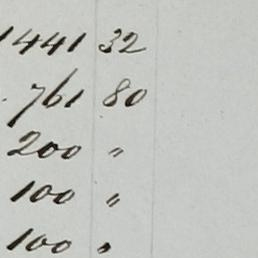 1441 32
761 80
200 "
100 "
100 "